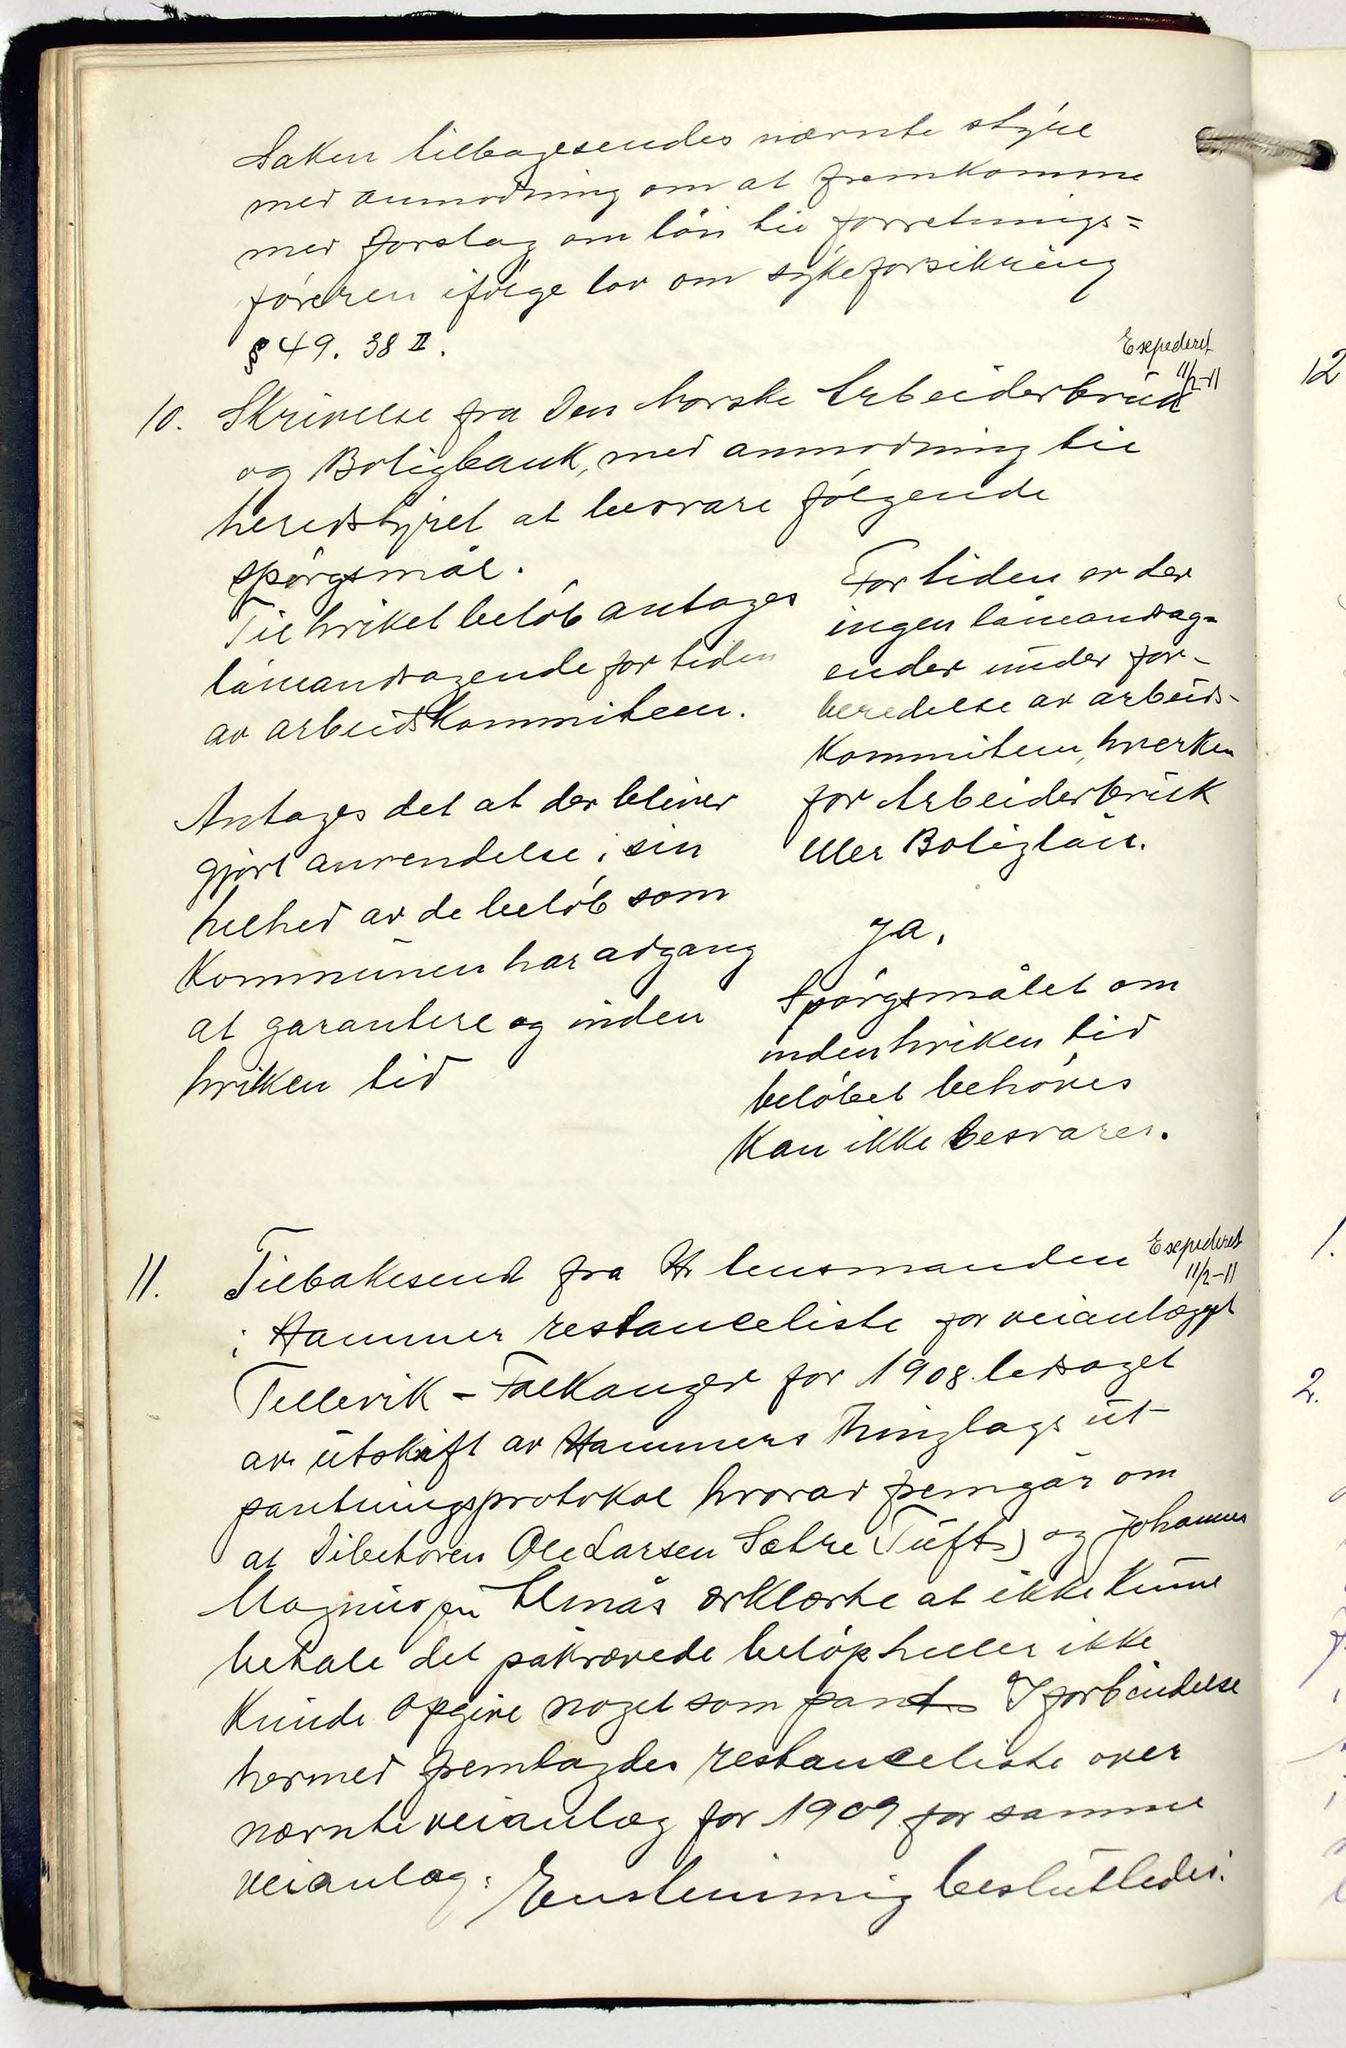 Saken tilbagesendes nævnte styre
med anmodning om at fremkomme
med forslag om løn til forretnings=
føreren ifølge lov om sykeforsikring
§ 49. 38 II.
Exspederet
11/2-11
10. Skrivelse fra Den Norske Arbeiderbruk
og Boligbank, med anmodning til
heredstyret at besvare følgende
spørgsmål.
Til hvilket beløb antages
låneandragende for tiden
av arbeidskommiteen.
Antages det at der bliver
gjort anvendelse i sin
helhed av de beløb som
Kommunen har adgang
at garantere og inden
hvilken tid
For tiden er der
ingen låneandrag=
ender under for-
beredelse av arbeids-
kommiteen, hverken
for Arbeiderbruk
eller Boliglån.
Ja.
Spørgsmålet om
inden hvilken tid
beløbet behøves
kan ikke besvares.
Exspederet
11/2-11
11. Tilbakesend fra Hr lensmanden
i Hammer restanceliste for veianlægget
Tellevik - Falkanger for 1908 ledsaget
av utskift av Hammers thinglags ut-
pantningsprotokol hvorav fremgår om
at Debetoren Ole Larsen Sætre (Tuft) og Johannes
Magnussen Elmås erklærte at ikke kunne
betale det påkrævede beløp heller ikke
kunde opgive noget som pant. I forbindelse
hermed fremlagdes restanceliste over
nævnte veianlæg for 1909 for samme
veianlæg: Enstemmig beslutledes:
12
1.
2.